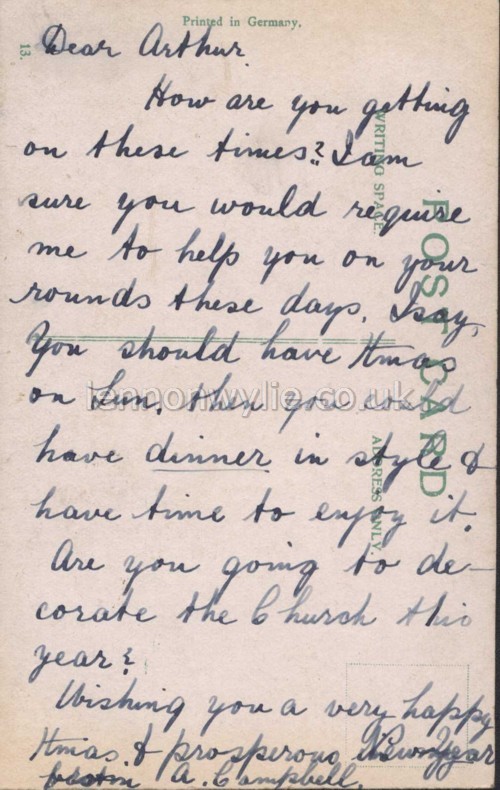 Printed in Germany.
13.
Dear Arthur.
How are you getting
on these times? I am
sure you would require
me to help you on your
rounds these days. I say,
You should have Xmas
on Sun. then you could
have dinner in style &
have time to enjoy it.
Are you going to de-
corate the Church this
year?
Wishing you a very happy
Xmas. & prosperous New Year
from A. Campbell.
WRITING SPACE.
POST CARD
ADDRESS ONLY.
lennonwylie.co.uk